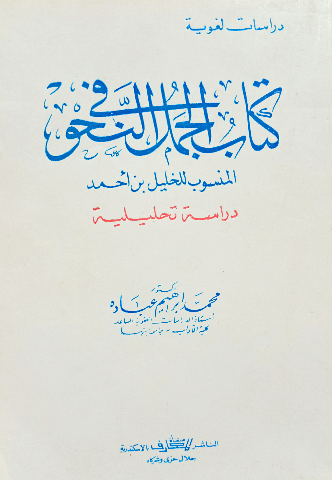 دراسات لغوية
كتاب الجمل في النحو
المنسوب للخليل بن أحمد
دراسة تحليلية
دكتور
محمد إبراهيم عباده
أستاذ الدراسات اللغوية المساعد
كلية الآداب - جامعة بنها
الناشر منشأة المعارف بالاسكندرية
جلال حزى وشركاه